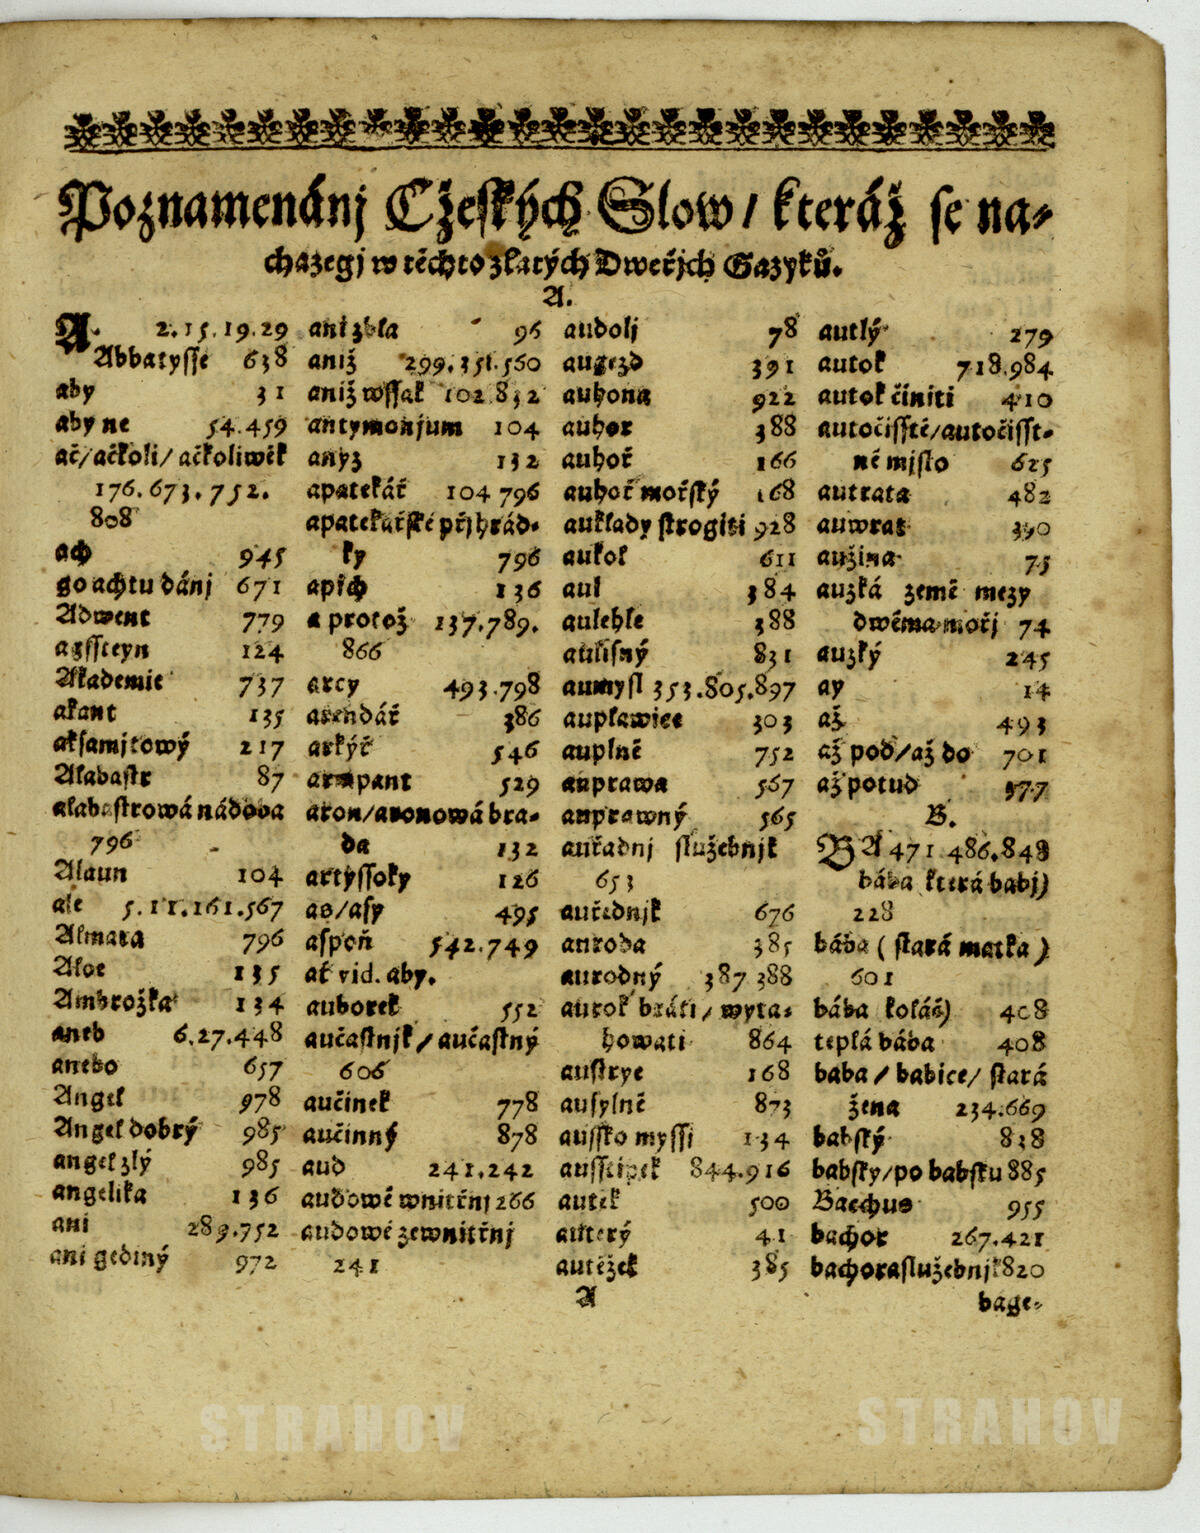 Poznamenánj Cžeských Slow / kteráž se na-
chazegj w těchto zlatých Dweřjch Gazyků.
A.
A. 2.15.19.29
Abbatysse 638
aby 31
aby ne 54.459
ač/ačkoli/ačkoliwěk
176.673.752.
808
ach 945
go achtu dánj 671
Adwent 779
agssteyn 124
Akademie 737
akant 135
aksamjtowý 217
Alabastr 87
alabastrowá nádoba
796
Alaun 104
ale 5.11.161.567
Almara 796
Aloe 135
Ambrožka 134
aneb 6.27.448
anebo 657
Angel 978
Angel dobrý 985
angel zlý 985
angelika 136
ani 289.752
ani gediný 972
ani zbla 96
aniž 299.351.560
aniž wssak 102.832
antymonjum 104
anyz 132
apatekář 104 796
apatekařské přjhrád-
ky 796
apich 136
a protož 137.789.
866
arcy 493.798
arendář 386
arkýř 546
arupant 529
aron/aronowá bra-
da 132
artyssoky 126
as/asy 495
aspoň 542.749
ať vid. aby.
auborek 552
aučastnjk/aučastný
606
aučinek 778
aučinný 878
aud 241.242
audowé wnitřnj 266
audowé zewnitřnj
241
audolj 78
augezd 391
auhona 922
auhor 388
auhoř 166
auhoř mořský 168
aukłady strogiti 928
aukol 611
aul 384
aulehle 388
aulisný 831
aumysl 353.805.897
aupławice 303
auplně 752
auprawa 567
auprawný 565
auřadnj služebnjk
653
auřednjk 676
auroda 385
aurodný 387 388
aurok bráti/wyta-
howati 864
austrye 168
ausylně 873
aussko myssi 134
ausstipek 844.916
autek 500
auterý 41
autěžek 385
A
autlý 279
autok 718.984
autok činiti 410
autočisstě/autočisst-
né mjsto 625
autrata 482
auwrat 390
aužina 75
auzká země mezy
dwěma mořj 74
auzký 245
ay 14
až 493
až pod/až do 701
až potud 977
B.
BA 471 486.848
bába která babj)
228
bába (stará matka)
601
bába koláč) 408
teplá bába 408
baba/babice/stará
žena 234.669
babský 838
babsky/po babsku 885
Bacchus 955
bachor 267.421
bachora služebnjk 820
bage-
STRAHOV
STRAHOV